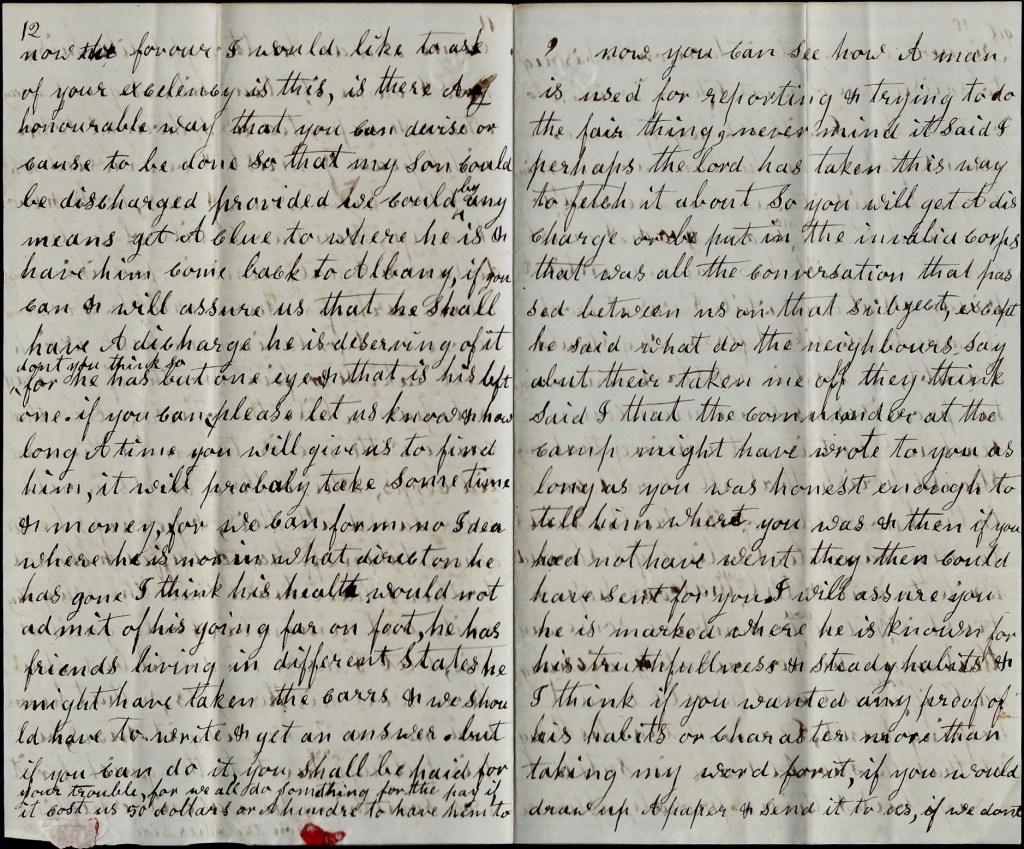 12
now the favour I would like to ask
of your excelency is this, is there Any
honourable way that you can devise or
cause to be done so that my son could
be discharged provided we could by any
means get A Clue to where he is &
have him come back to Albany, if you
can & will assure us that he shall
have A discharge he is deserving of it
dont you think so
for he has but one eye & that is his left
one. if you can please let us know & how
long A time you will give us to find
him, it will probaly take some time
& money, for we can form no Idea
where he is nor in what directon he
has gone I think his health would not
admit of his going far on foot, he has
friends living in different States he
might have taken the carrs & we shou
ld have to write & get an answer. but
if you can do it, you shall be paid for
your trouble, for we all do something for the pay if
it cost us 50 dollars or A hundre to have him to
9 now you can see how A man
is used for reporting & trying to do
the fair thing, never mind it said I
perhaps the lord has taken this way
to fetch it about so you will get A dis
charge or be put in the invalid corps
that was all the conversation that pas
sed between us on that subject, except
he said what do the neighbours say
abut their taken me off they think
said I that the commander at the
camp might have wrote to you as
long as you was honest enough to
tell him where you was & then if you
had not have went they then could
have sent for you I will assure you
he is marked where he is known for
his truthfullness & steady habits &
I think if you wanted any proof of
his habits or character more than
taking my word for it, if you would
draw up A paper & send it to us, if we dont